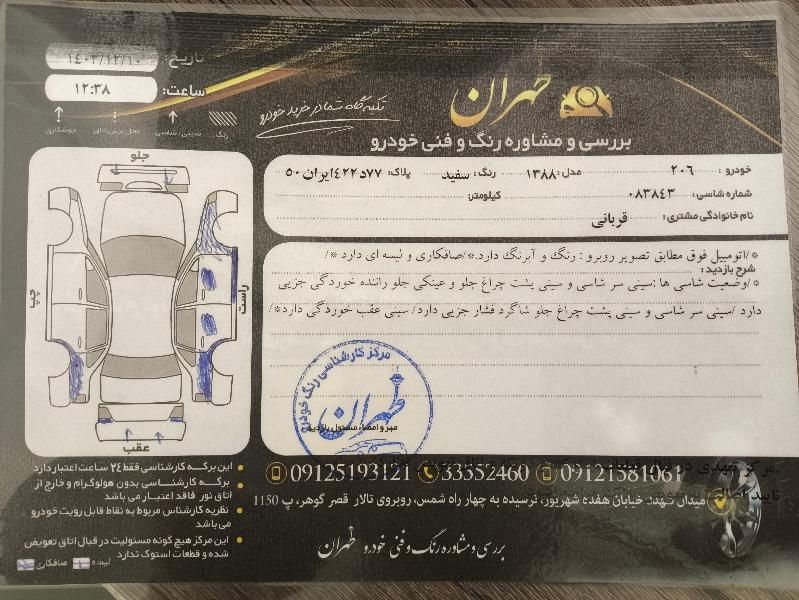 تاریخ: ۱۴۰۳/۱۲/۱۰
ساعت: ۱۲:۳۸
رنگ
سینی، شاسی
محل برش اتاق
جوشکاری
تهران
تکیه گاه شما در خرید خودرو
بررسی و مشاوره رنگ و فنی خودرو
خودرو : ۲۰۶ مدل: ۱۳۸۸ رنگ: سفید پلاک: ۷۷د۴۲۲ایران۵۰
شماره شاسی: ۰۸۳۸۴۳ کیلومتر:
نام خانوادگی مشتری: قربانی
جلو
چپ
راست
عقب
*/اتومبیل فوق مطابق تصویر روبرو : رنگ و آبرنگ دارد.*/صافکاری و لیسه ای دارد */
شرح بازدید:
*/وضعیت شاسی ها :سینی سر شاسی و سینی پشت چراغ جلو و عینکی جلو راننده خوردگی جزیی
دارد /سینی سر شاسی و سینی پشت چراغ جلو شاگرد فشار جزیی دارد/ سینی عقب خوردگی دارد*/
مرکز کارشناسی رنگ خودرو
طهران
مهر و امضاء مسئول بازدید:
این برگه کارشناسی فقط ۲۴ ساعت اعتبار دارد
برگه کارشناسی بدون هولوگرام و خارج از
اتاق نور فاقد اعتبار می باشد
نظریه کارشناس مربوط به نقاط قابل رویت خودرو
می باشد
این مرکز هیچ گونه مسئولیت در قبال اتاق تعویض
شده و قطعات استوک ندارد
لیسه صافکاری
09125193121 33552460 09121581061
میدان شهدا، خیابان هفده شهریور، نرسیده به چهار راه شمس، روبروی تالار قصر گوهر، پ 1150
بررسی و مشاوره رنگ و فنی خودرو طهران